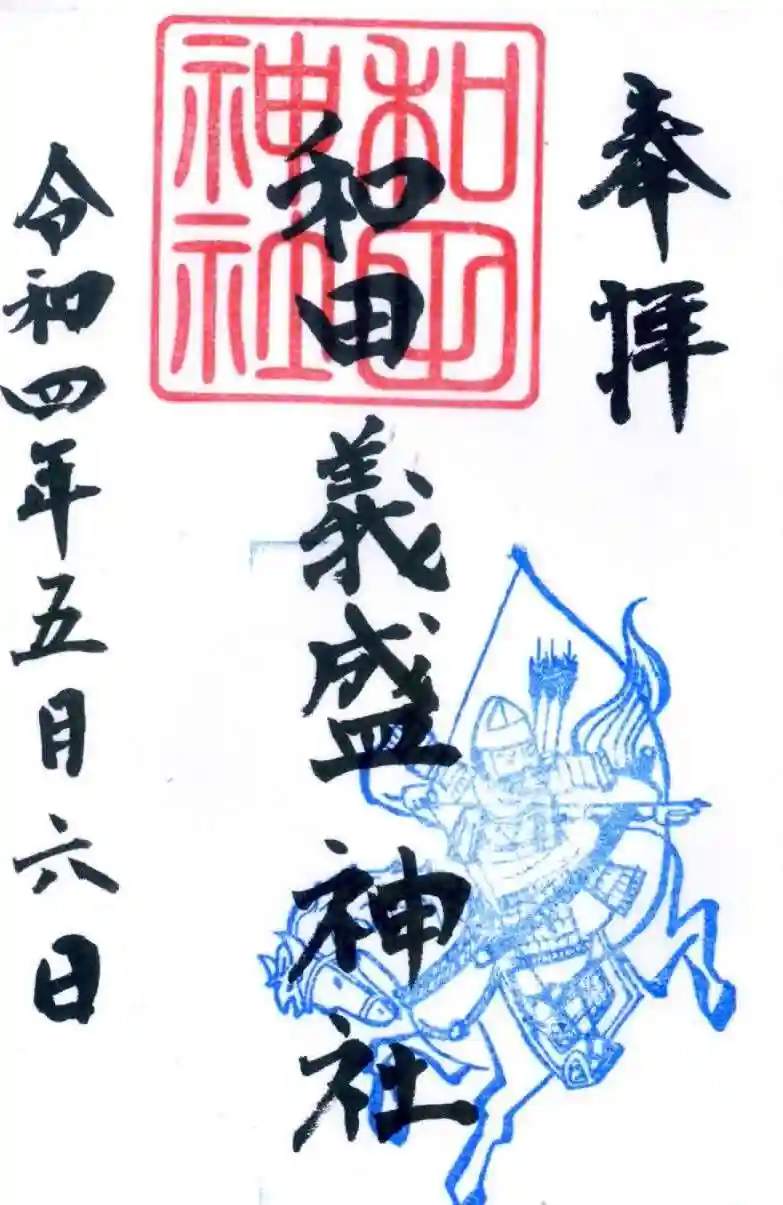 奉拝
和田神社
和田義盛神社
令和四年五月六日